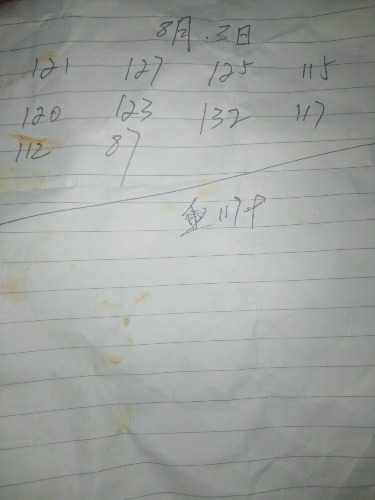 8月.三日
121 127 125 115
120 123 132 117
112 87
重117斤